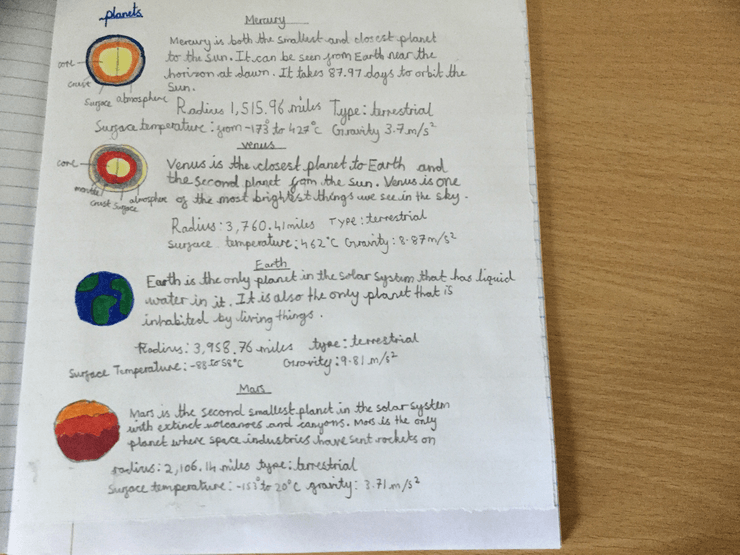 planets
Mercury
Mercury is both the smallest and closest planet
to the sun. It can be seen from Earth near the
horizon at dawn. It takes 87.97 days to orbit the
Sun.
core
crust
Surface
atmosphere
Radius 1,515.96 miles Type: terrestrial
Surface temperature: from -173° to 427°C Gravity 3.7 m/s²
venus
Venus is the closest planet to Earth and
the second planet from the Sun. Venus is one
of the most brightest things we see in the sky.
core
mantle
crust
Surface
atmosphere
Radius: 3,760.41 miles Type: terrestrial
Surface temperature: 462°C Gravity: 8.87 m/s²
Earth
Earth is the only planet in the solar system that has liquid
water in it. It is also the only planet that is
inhabited by living things.
Radius: 3,958.76 miles type: terrestrial
Surface Temperature: -88 to 58°C Gravity: 9.81 m/s²
Mars
Mars is the second smallest planet in the solar system
with extinct volcanoes and canyons. Mars is the only
planet where space industries have sent rockets on
radius: 2,106.14 miles type: terrestrial
Surface temperature: -153° to 20°C gravity: 3.71 m/s²